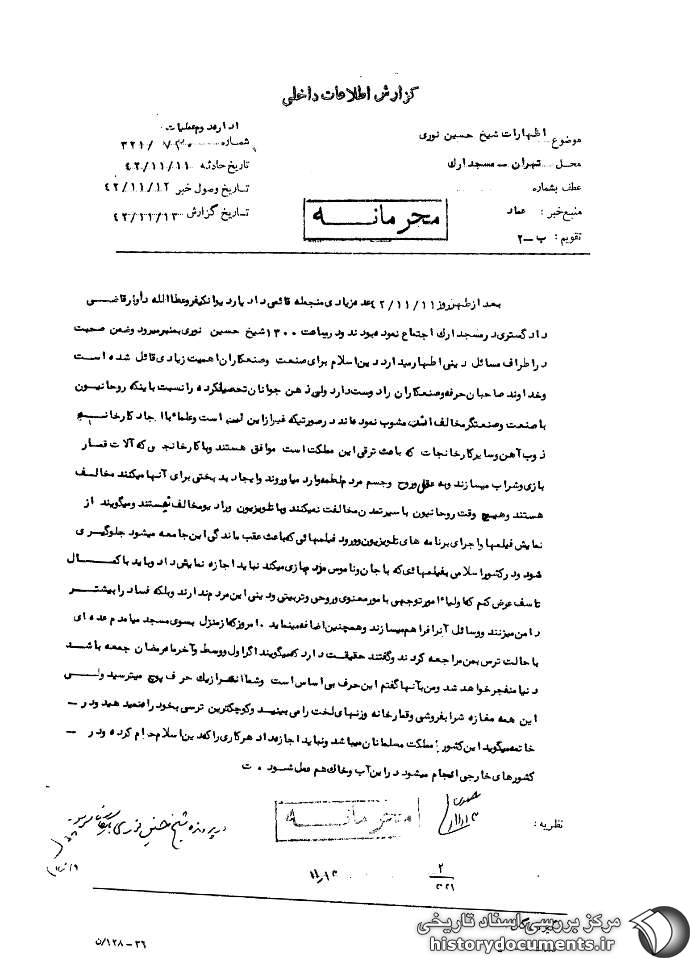 گزارش اطلاعات داخلی
موضوع اظهارات شیخ حسین نوری
محل تهران – مسجد ارك
عطف بشماره
منبع خبر : عماد
تقویم : ب – ۲
اداره دوم عملیات
شماره ۳۲۱/
تاریخ حادثه ۴۲/۱۱/۱۱
تاریخ وصول خبر ۴۲/۱۱/۱۲
تاریخ گزارش ۴۲/۱۱/۱۳
محرمانه
بعد از ظهر روز ۴۲/۱۱/۱۱ عده زیادی منجمله قائمی دادیار دیوانکیفر و عطاالله داور قاضی
دادگستری در مسجد ارك اجتماع نموده بودند و در ساعت ۱۳۰۰ شیخ حسین نوری بمنبر میرود و ضمن صحبت
در اطراف مسائل دینی اظهار میدارد دین اسلام برای صنعت و صنعتکاران اهمیت زیادی قائل شده است
و خداوند صاحبان حرفه و صنعتکاران را دوست دارد ولی ذهن جوانان تحصیلکرده را نسبت باینکه روحانیون
با صنعت و صنعتگر مخالف است مشوب نموده اند در صورتیکه غیر از این است و علماء با ایجاد کارخانه
ذوب آهن و سایر کارخانجات که باعث ترقی این مملکت است موافق هستند و با کارخانجی که آلات قمار
بازی و شراب میسازند و به عقل و روح و جسم مردم لطمه وارد میاورند و ایجاد بدبختی برای آنها میکنند مخالف
هستند و هیچ وقت روحانیون با سیر تمدن مخالفت نمیکنند و با تلویزیون و رادیو مخالف نیستند و میگویند از
نمایش فیلمها و اجرای برنامه های تلویزیون و ورود فیلمهائی که باعث عقب ماندگی این جامعه میشود جلوگیری
شود و در کشور اسلامی بفیلمهائی که با جان و ناموس مردم بازی میکند نباید اجازه نمایش داد و باید با کمال
تاسف عرض کنم که اولیاء امور توجهی بامور معنوی و روحی و تربیتی و دینی این مردم ندارند و بلکه فساد را بیشتر
دامن میزنند و وسائل آنرا فراهم میسازند و همچنین اضافه مینماید امروز که از منزل بسوی مسجد میامدم عده ای
با حالت ترس بمن مراجعه کردند و گفتند حقیقت دارد که میگویند اگر اول و وسط و آخر ماه رمضان جمعه باشد
دنیا منفجر خواهد شد و من بآنها گفتم این حرف بی اساس است و شما از یك حرف پوچ میترسید ولی
این همه مغازه شرابفروشی و قمارخانه و زنهای لخت را می بینید و کوچکترین ترسی بخود راه نمیدهید و در –
خاتمه میگوید این کشور مملکت مسلمانان میباشد و نباید اجازه داد هر کاری را که دین اسلام حرام کرده و در –
کشورهای خارجی انجام میشود در این آب و خاك هم عمل شود . ت
نظریه :
محرمانه
۱۱/۱۳
در پرونده شیخ حسین نوری
۲
۳۲۱
۳۶ – ۱۲۸/ن
مرکز بررسی اسناد تاریخی
historydocuments.ir